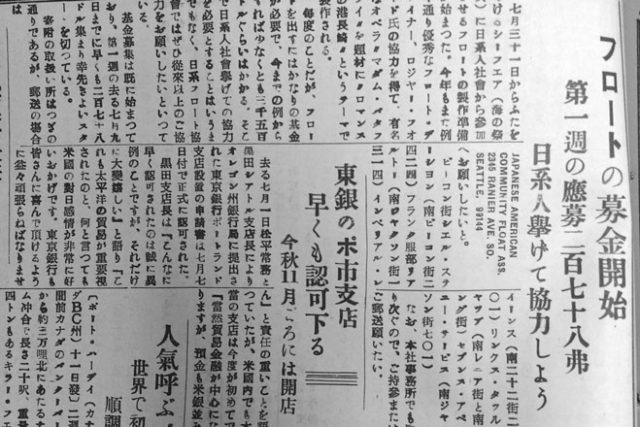 フロートの募金開始
第一週の應募二百七十八弗
日系人擧げて協力しよう
七月三十一日からふたを
けるシーフェア(海の祭
に日系人社會から参加
せるフロートの製作準備
始まつた。今年もまた例
通り優秀なフロート・デ
イナー、ロジャー・フオ
ド氏の協力を得て、有名
オペラ「マダム・バタフ
イ」を題材に「ロマンス
の港長崎」というテーマで
製作される。
毎度のことだが、フロー
トを出すにはかなりの基金
が必要で、今までの例から
すればゆなくとも三千五百
ドルぐらいはかかる。そこ
で日系社會擧げての協力
を必要とすることはいうま
でもなく、日系フロート協
會ではぜひ從來以上のご協
力をお願いしたいといつて
いる。
基金募集は既に始まつて
おり、第一週の去る七月九
日までに早くも二百七十八
ドル集まり幸先きよいスタ
ートを切つている。
寄附の取扱い所はつぎの
通りであるが、郵送の場合
JAPANESE AMERICAN
COMMUNITY FLOAT ASS.
2345 RANIER AVE. SO.
SEATTLE, 99144
へお願いしたいと。
ビーコン街シエル・ステ
ーシヨン(南ビーコン街二
四二四)フランク服部リア
ルトー(南ジヤクソン街一
三一四)インペリアル・レ
イーンス(南二十二街二
〇一)リンクス・タツル
ヤリア(南レニア街と南
ング街)セブンス・アベ
ー・サービス(南ジヤ
ソン街七〇一)
なお、本社事務所でも
り次ぐので、ご持参また
ご郵送願いたい。
東銀のポ市支店
早くも認可下る
今秋11月ごろには開店
去る七月一日松平常務と
黒田シアトル支店長により
オレゴン州銀行局に提出さ
れた東京銀行ポートランド
支店設置の申請書は七月七
日付で正式に認可された。
黒田支店長は「こんなに
早く認可されたのは誠に異
例のことですが、それだけ
に大變嬉しい」と語り「こ
れも太平洋の貿易が重要視
されたのと、何と言つても
米國の對日感情が非常に好
いおかげです。東京銀行も
皆さんに喜んで頂けるよう
に益々頑張らねばなりませ
ん」と責任の重いことを語
つていたが、米國内でも本
當の支店は今度が初めてで
「當然貿易金融が中心にな
りますが、預金も米銀並み
人氣呼ぶ
世界で初
順調
〔ポート・ハーデイ(カナ
ダBC州)十一日發〕二週
間前カナダのバンクーバー
から約三万哩北にあるナム
ム冲合に長さ二十呎、重量
四トンもあるキラー・フエ